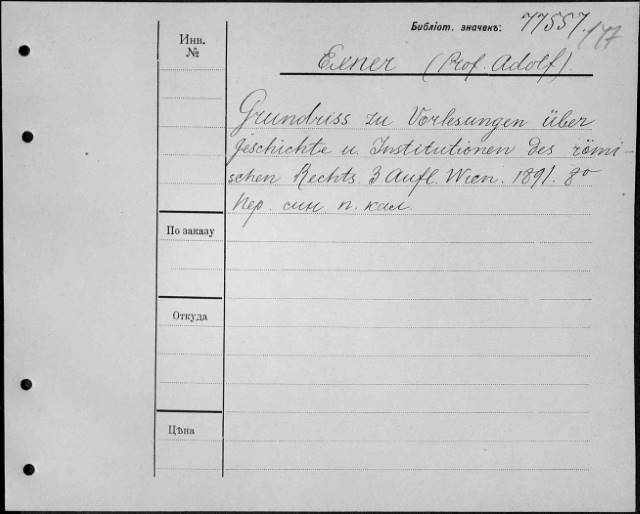 Библіот. значекъ: 77557.
177
Инв. №
Exner (Prof. Adolf).
Grundriss zu Vorlesungen über
Geschichte u. Institutionen des römi-
schen Rechts. 3 Aufl. Wien. 1891. 8º
Пер. син. п. кал.
По заказу
Откуда
Цѣна